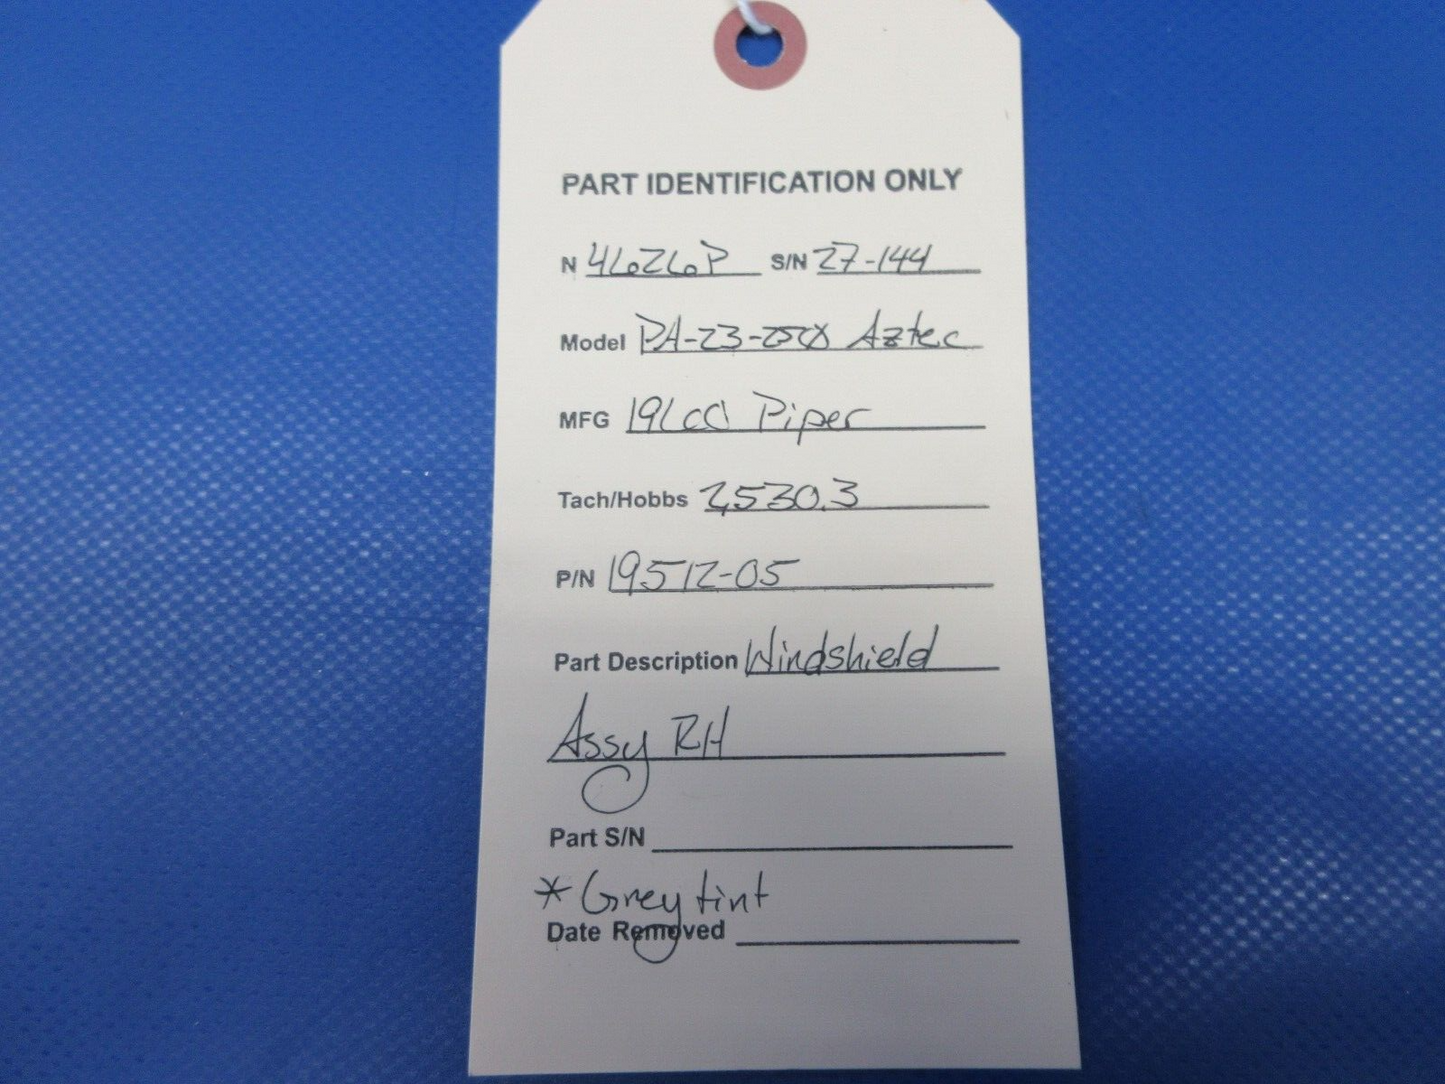 PART IDENTIFICATION ONLY
N 4626P S/N 27-144
Model PA-23-250 Aztec
MFG 1960 Piper
Tach/Hobbs 2,530.3
P/N 19512-05
Part Description Windshield
Assy RH
Part S/N
* Grey tint
Date Removed